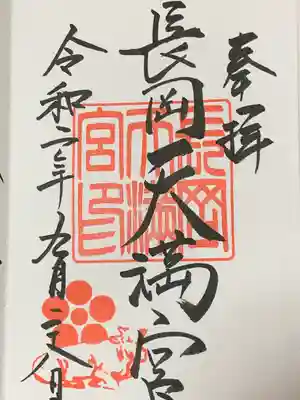 奉拝
長岡天満宮
長岡天満宮印
令和二年九月二十八日